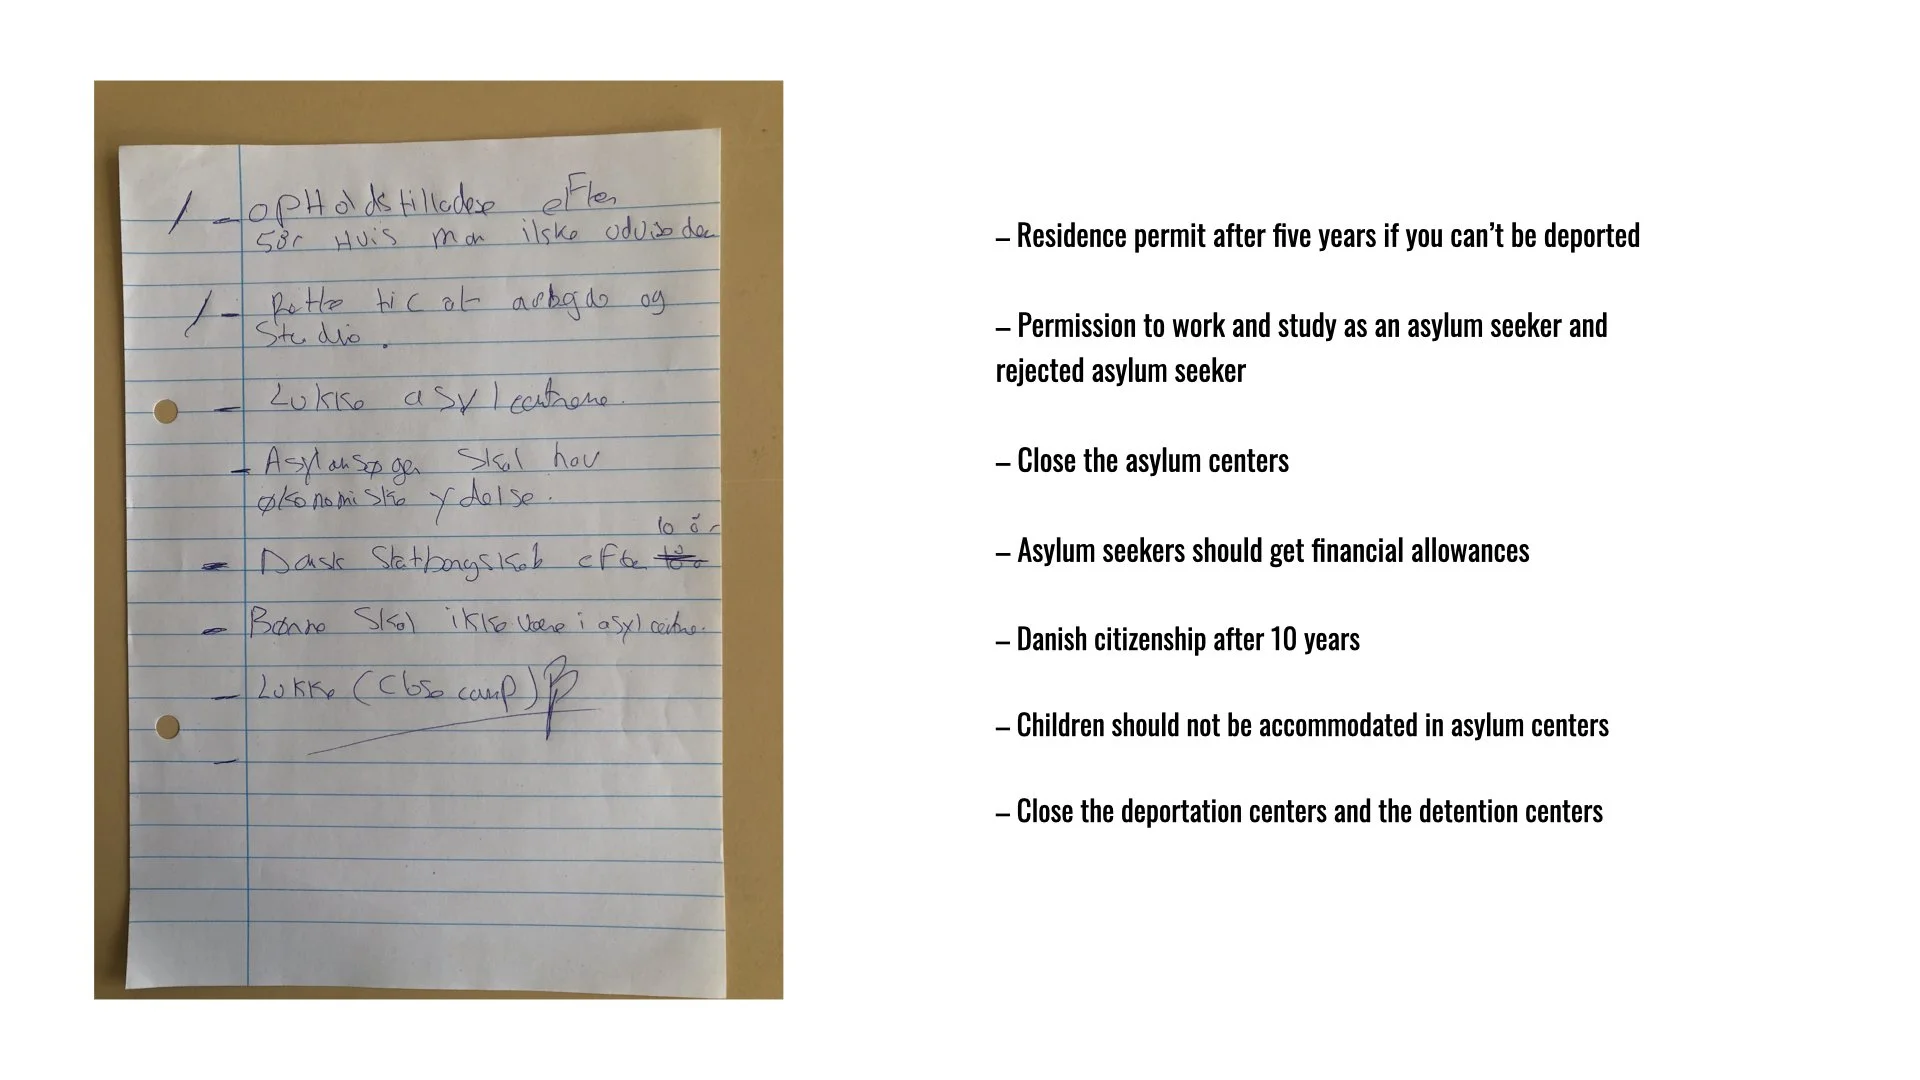 / - OPHoldstilladese efter
5år Hvis man ikke udviseden
/ - Rette til at arbgde og
Studie.
- Lukke asylcentrene.
- Asylansøger Skal hav
økonomiske ydelse.
10 år
- Dansk Statborgskab efte
- Børne Skal ikke være i asylcentre.
- Lukke (Close camp)
-
– Residence permit after five years if you can’t be deported
– Permission to work and study as an asylum seeker and
rejected asylum seeker
– Close the asylum centers
– Asylum seekers should get financial allowances
– Danish citizenship after 10 years
– Children should not be accommodated in asylum centers
– Close the deportation centers and the detention centers